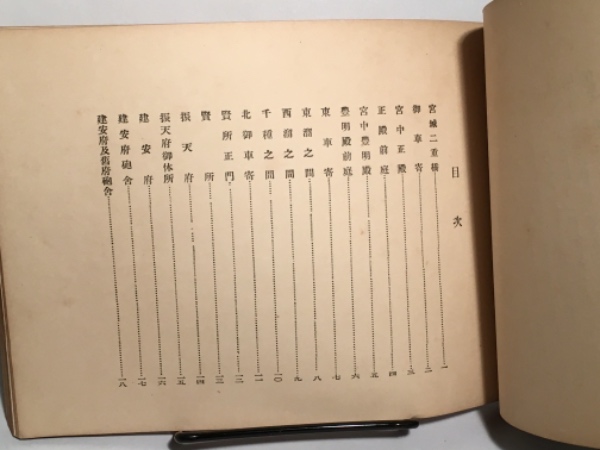 目次
宮城二重橋………一
御車寄………二
宮中正殿………三
正殿前庭………四
宮中豊明殿………五
豊明殿前庭………六
東車寄………七
東溜之間………八
西溜之間………九
千種之間………一〇
北御車寄………一一
賢所正門………一二
賢所………一三
振天府………一四
振天府御休所………一五
建安府………一六
建安府砲舎………一七
建安府及舊府砲舎………一八